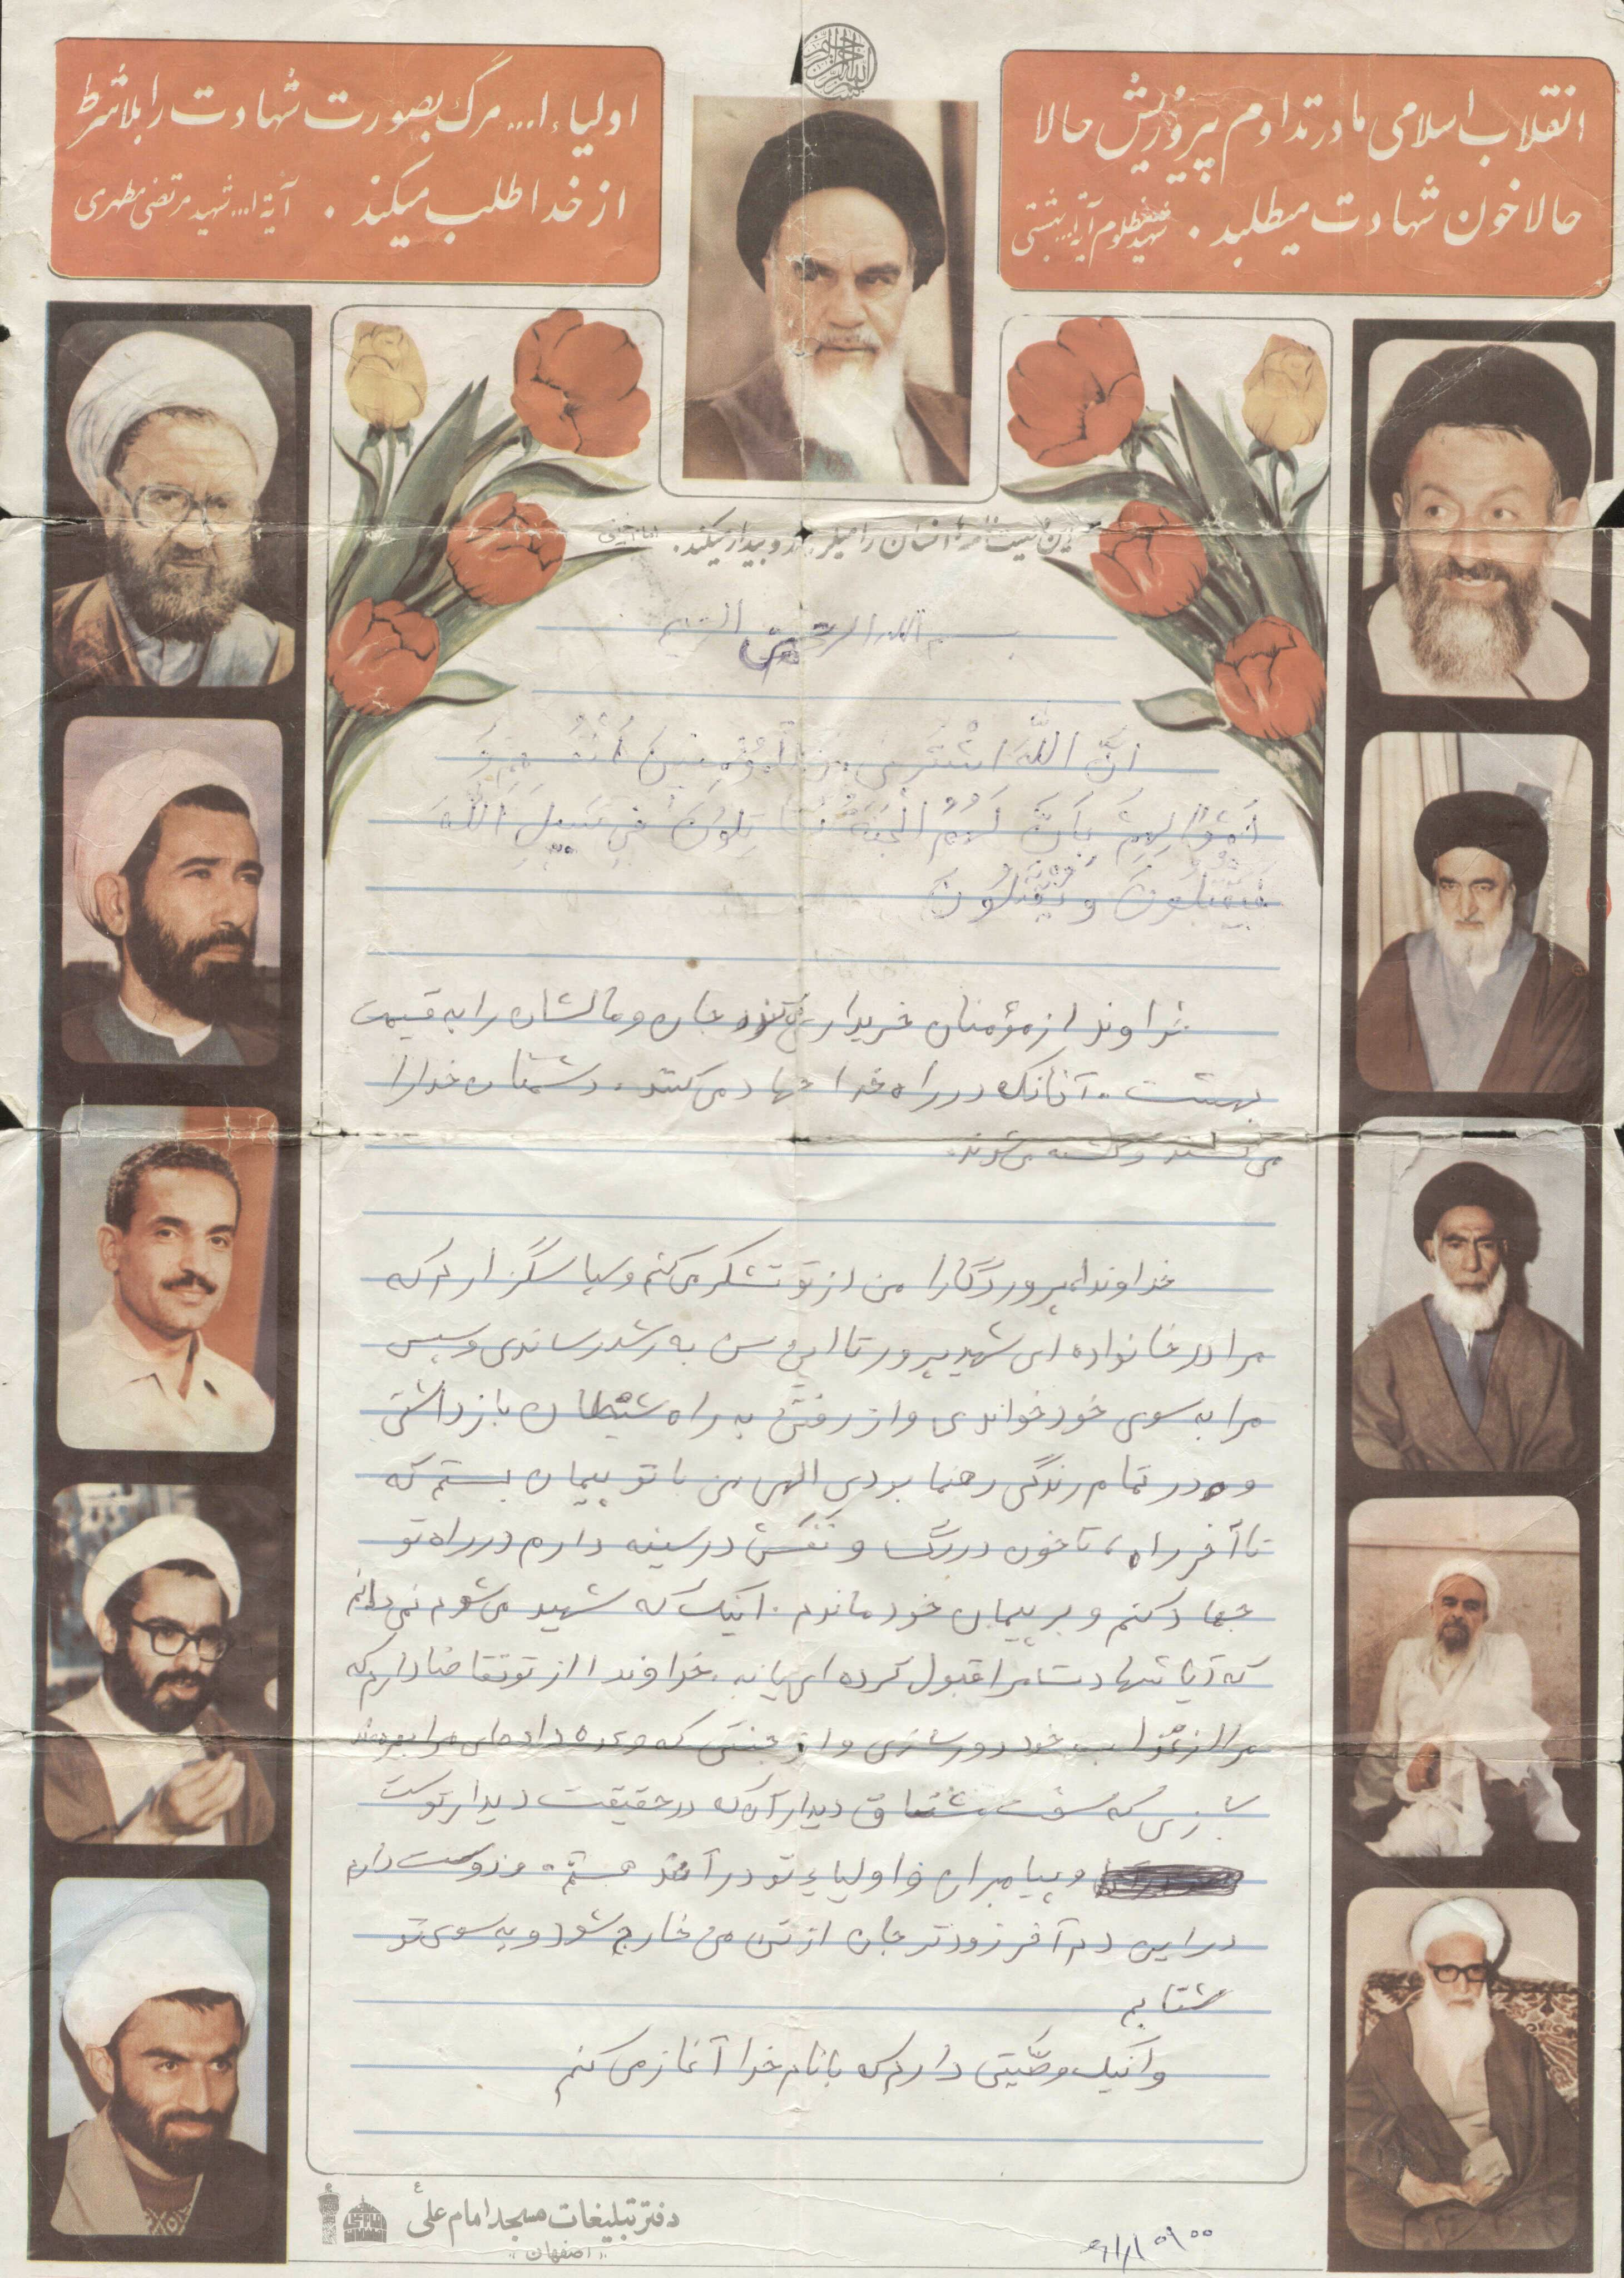 انقلاب اسلامی ما در تداوم پیروزیش حالا
حالا خون شهادت میطلبد . شهید مظلوم آیة ا... بهشتی
اولیاء ا... مرگ بصورت شهادت را بلاشرط
از خدا طلب میکند . آیة ا... شهید مرتضی مطهری
این وصیت نامه‌ها انسان را میلرزاند و بیدار میکند. امام خمینی
بسم الله الرحمن الرحیم
انَّ اللهَ اشْتَرىٰ مِنَ المُؤمِنینَ اَنْفُسَهُمْ وَ
اَمْوالَهُمْ بِاَنَّ لَهُمُ الْجَنَةَ یُقاتِلوُنَ فی سَبیلِ اللهَ
فَیَقْتُلُونَ وَ یُقْتَلُونَ
خداوند از مؤمنان خریدار جان و مالشان را به قیمت
بهشت . آنانکه در راه خدا جهاد می کنند . دشمنان خدا را
می کشند و کشته می شوند.
خداوندا، پروردگارا من از تو تشکر می کنم و سپاسگزارم که
مرا در خانواده ای شهیدپرور تا این سن به رشد رساندی و سپس
مرا به سوی خود خواندی و از رفتن به راه شیطان باز داشتی
و در تمام زندگی رهنما بودی الهی من با تو پیمان بستم که
تا آخر راه، تا خون در رگ و نفس در سینه دارم در راه تو
جهاد کنم و بر پیمان خود ماندم . اینک که شهید می شوم نمی دانم
که آیا شهادت مرا قبول کرده ای یا نه . خداوندا از تو تقاضا دارم که
مرا از عذاب خود دور سازی و از جنتی که وعده داده ای مرا بهره مند
سازی که مشتاق دیدار آن که در حقیقت دیدار توست
و پیامبران و اولیاء تو در آنند هستم . و دوست دارم
در این دم آخر زودتر جان از تن من خارج شود و به سوی تو
شتابم
و اینک وصیّتی دارم که با نام خدا آغاز می کنم
دفتر تبلیغات مسجد امام علی ع
«اصفهان»